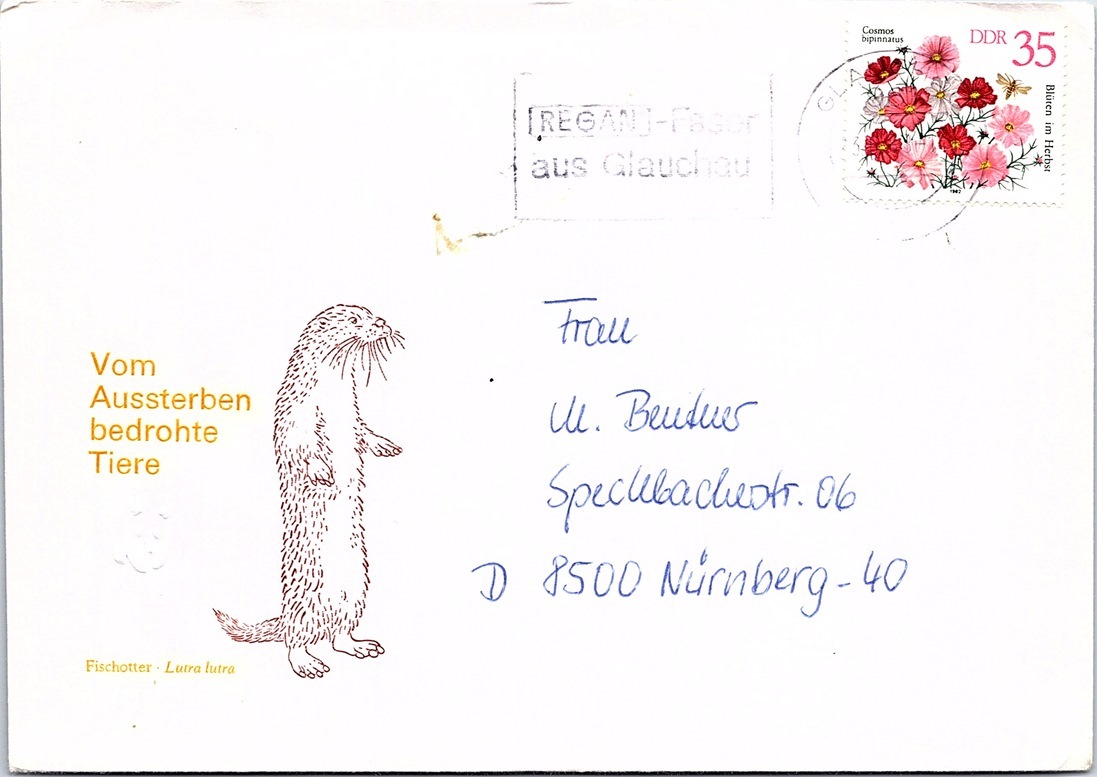 Cosmos
bipinnatus
DDR 35
Blüten im Herbst
1982
GLA
[REGAN]-Faser
aus Glauchau
Vom
Aussterben
bedrohte
Tiere
Fischotter · Lutra lutra
Frau
M. Beutner
Speckbacherstr. 06
D 8500 Nürnberg-40